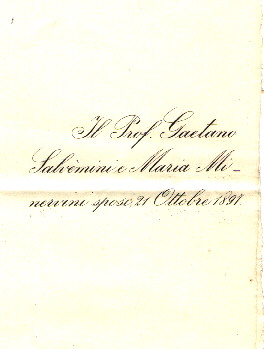 Il Prof. Gaetano
Salvèmini e Maria Mi_
nervini sposi, 21 Ottobre 1897.